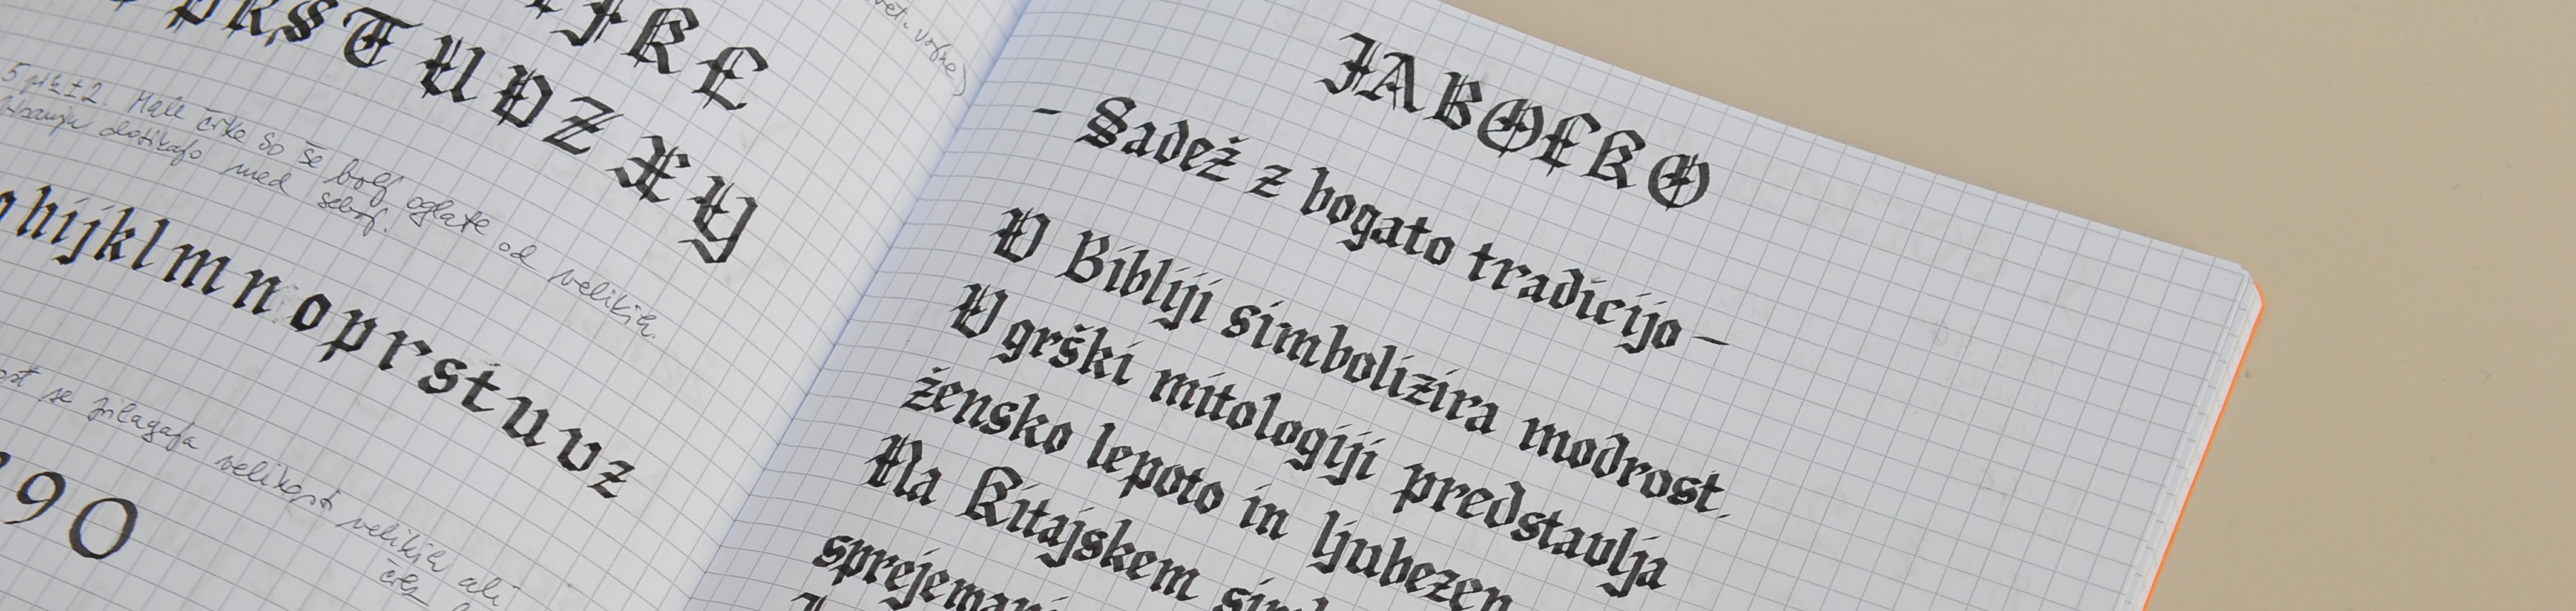 J K L
P R S T U V Z X Y
5 ± 2. Male črke so še bolj oglate od velikih.
dotikajo med seboj.
h i j k l m n o p r s t u v z
se prilagaja velikost velikih ali
črk
9 0
JABOLKO
- Sadež z bogato tradicijo -
V Bibliji simbolizira modrost.
V grški mitologiji predstavlja
žensko lepoto in ljubezen
Na Kitajskem